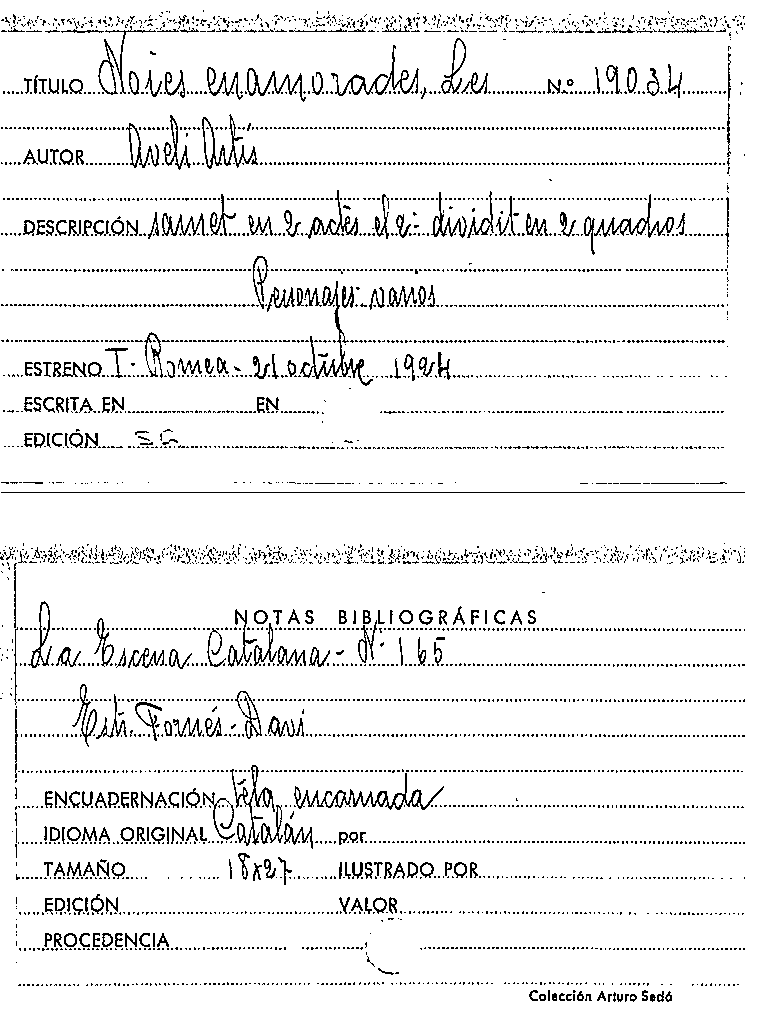 TÍTULO Noies enamorades, Les N.º 19034
AUTOR Aveli Artís
DESCRIPCIÓN sainet en 2 actes el 2º dividit en 2 quadros
Personajes varios
ESTRENO T. Romea - 21 octubre 1924
ESCRITA EN EN
EDICIÓN SG
NOTAS BIBLIOGRÁFICAS
La Escena Catalana - Nº 165
Estr. Fornés - Davi
ENCUADERNACIÓN tela encarnada
IDIOMA ORIGINAL Catalán por
TAMAÑO 18x27 ILUSTRADO POR
EDICIÓN VALOR
PROCEDENCIA
Colección Arturo Sedó